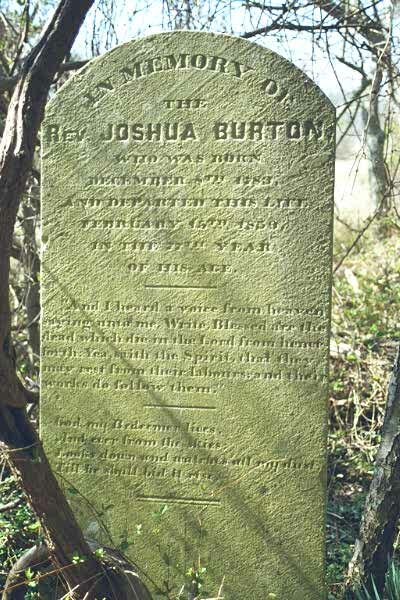 IN MEMORY OF
THE
REV. JOSHUA BURTON,
WHO WAS BORN
DECEMBER 4TH 1783,
AND DEPARTED THIS LIFE
FEBRUARY 15TH 1859,
IN THE 77TH YEAR
OF HIS AGE.
"And I heard a voice from heaven
saying unto me, Write, Blessed are the
dead which die in the Lord from hence-
forth: Yea, saith the Spirit, that they
may rest from their labours; and their
works do follow them."
God my Redeemer lives,
And ever from the skies
Looks down and watches all my dust,
Till he shall bid it rise.